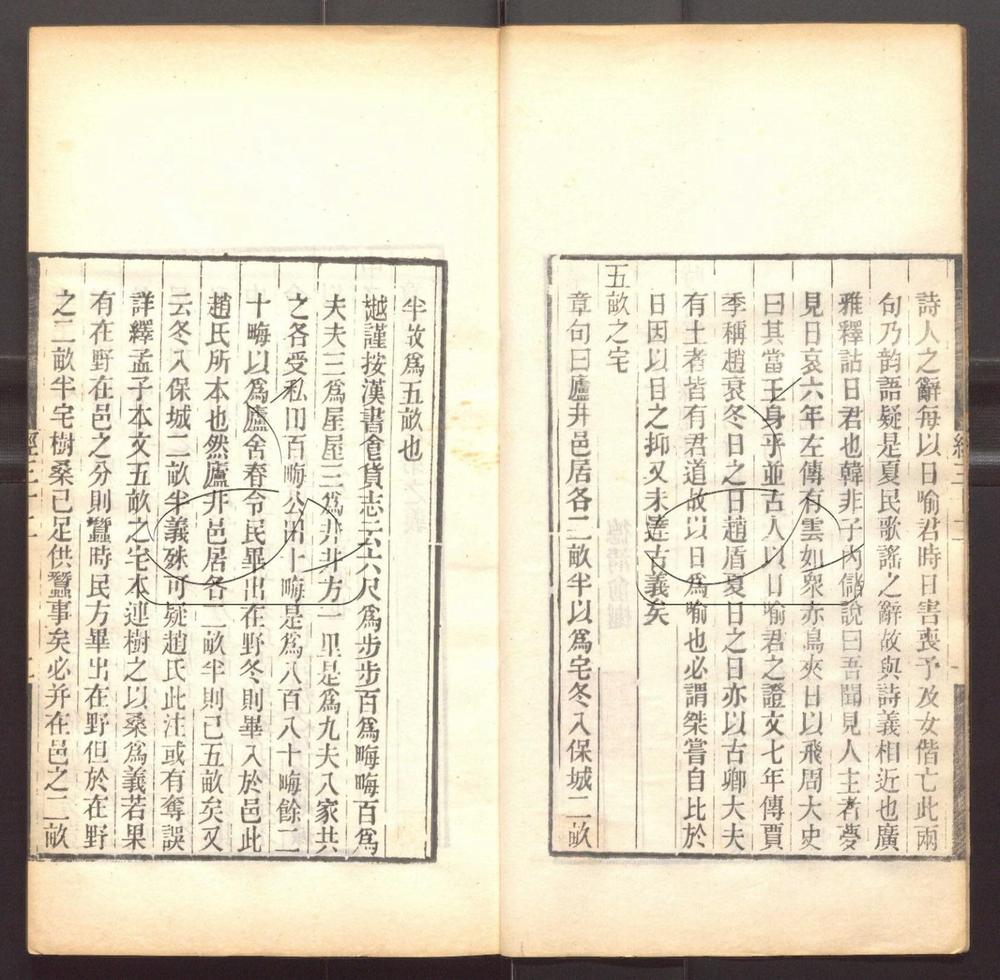 詩人之辭每以日喻君時日害喪予及女偕亡此兩
句乃韵語疑是夏民歌謠之辭故與詩義相近也廣
雅釋詁日君也韓非子內儲說曰吾聞見人主者夢
見日哀六年左傳有雲如衆赤鳥夾日以飛周大史
曰其當王身乎並古人以日喻君之證文七年傳賈
季稱趙衰冬日之日趙盾夏日之日亦以古卿大夫
有土者皆有君道故以日爲喻也必謂桀嘗自比於
日因以日之抑又未達古義矣
五畝之宅
章句曰廬井邑居各二畝半以爲宅冬入保城二畝
半故爲五畝也
樾謹按漢書食貨志云六尺爲步步百爲畮畮百爲
夫夫三爲屋屋三爲井井方一里是爲九夫八家共
之各受私田百畮公田十畮是爲八百八十畮餘二
十畮以爲廬舍春令民畢出在野冬則畢入於邑此
趙氏所本也然廬井邑居各二畝半則已五畝矣又
云冬入保城二畝半義殊可疑趙氏此注或有奪誤
詳繹孟子本文五畝之宅本連樹之以桑爲義若果
有在野在邑之分則蠶時民方畢出在野但於在野
之二畝半宅樹桑已足供蠶事矣必并在邑之二畝
經三十二